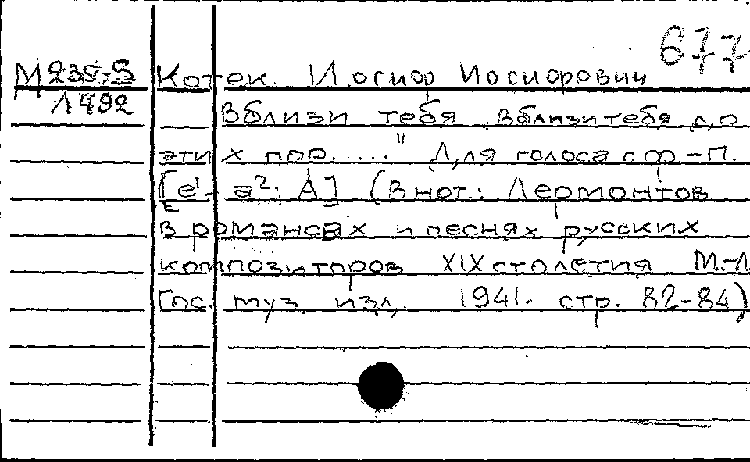 677
М 235-5 Котек. Иосиф Иосифович
Л 492 Вблизи тебя "Вблизи тебя до
этих пор....." Для голоса с ф-п.
[e¹-a²: A] (В нот: Лермонтов
в романсах и песнях русских
композиторов XIX столетия М.-Л
Гос. муз. изд. 1941. стр. 82-84)